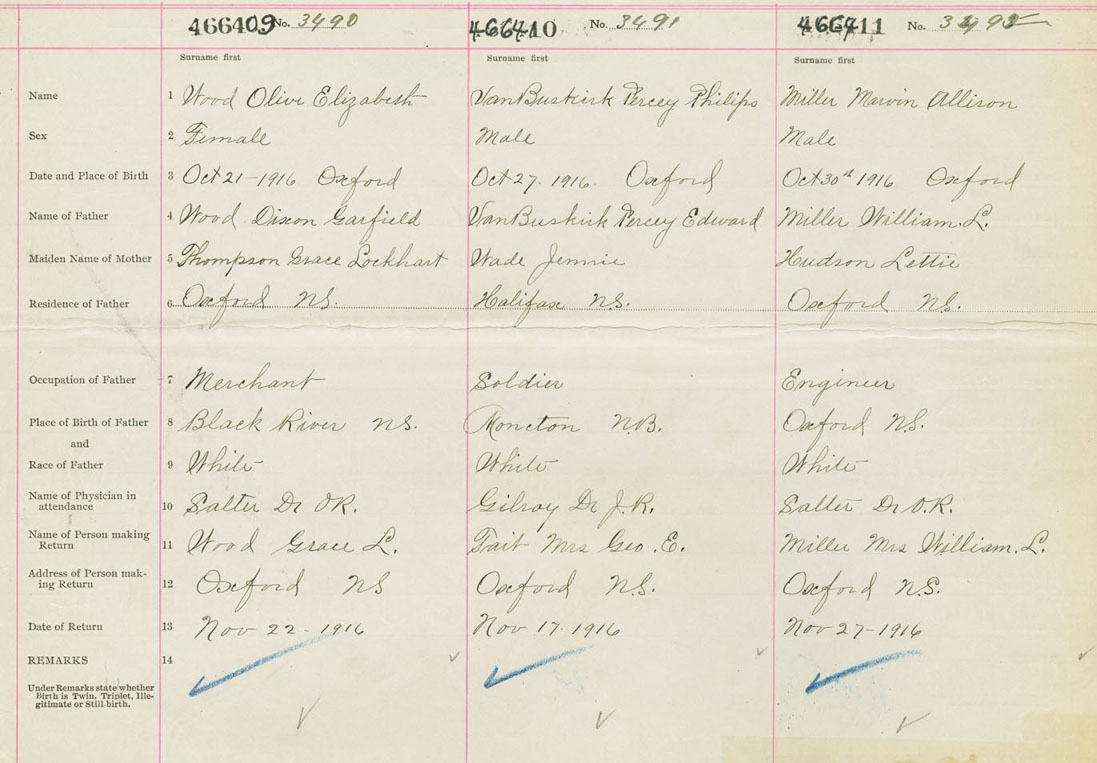 466409 No. 3490 466410 No. 3491 466411 No.
Surname first Surname first Surname first
Name 1 Wood Olive Elizabeth VanBuskirk Percey Philips Miller Marvin Allison
Sex 2 Female Male Male
Date and Place of Birth 3 Oct 21-1916 Oxford Oct 27. 1916. Oxford Oct 30th 1916 Oxford
Name of Father 4 Wood Dixon Garfield VanBuskirk Percey Edward Miller William. L.
Maiden Name of Mother 5 Thompson Grace Lockhart Wade Jennie Hudson Lettie
Residence of Father 6 Oxford NS. Halifax NS. Oxford NS.
Occupation of Father 7 Merchant Soldier Engineer
Place of Birth of Father 8 Black River NS. Moncton N.B. Oxford NS.
and
Race of Father 9 White White White
Name of Physician in
attendance 10 Salter Dr OR. Gilroy Dr J.R. Salter Dr O.R.
Name of Person making
Return 11 Wood Grace L. Tait Mrs Geo. E. Miller Mrs William. L.
Address of Person mak-
ing Return 12 Oxford NS Oxford N.S. Oxford N.S.
Date of Return 13 Nov 22-1916 Nov 17. 1916 Nov 27-1916
REMARKS 14
Under Remarks state whether
Birth is Twin, Triplet, Ille-
gitimate or Still-birth.